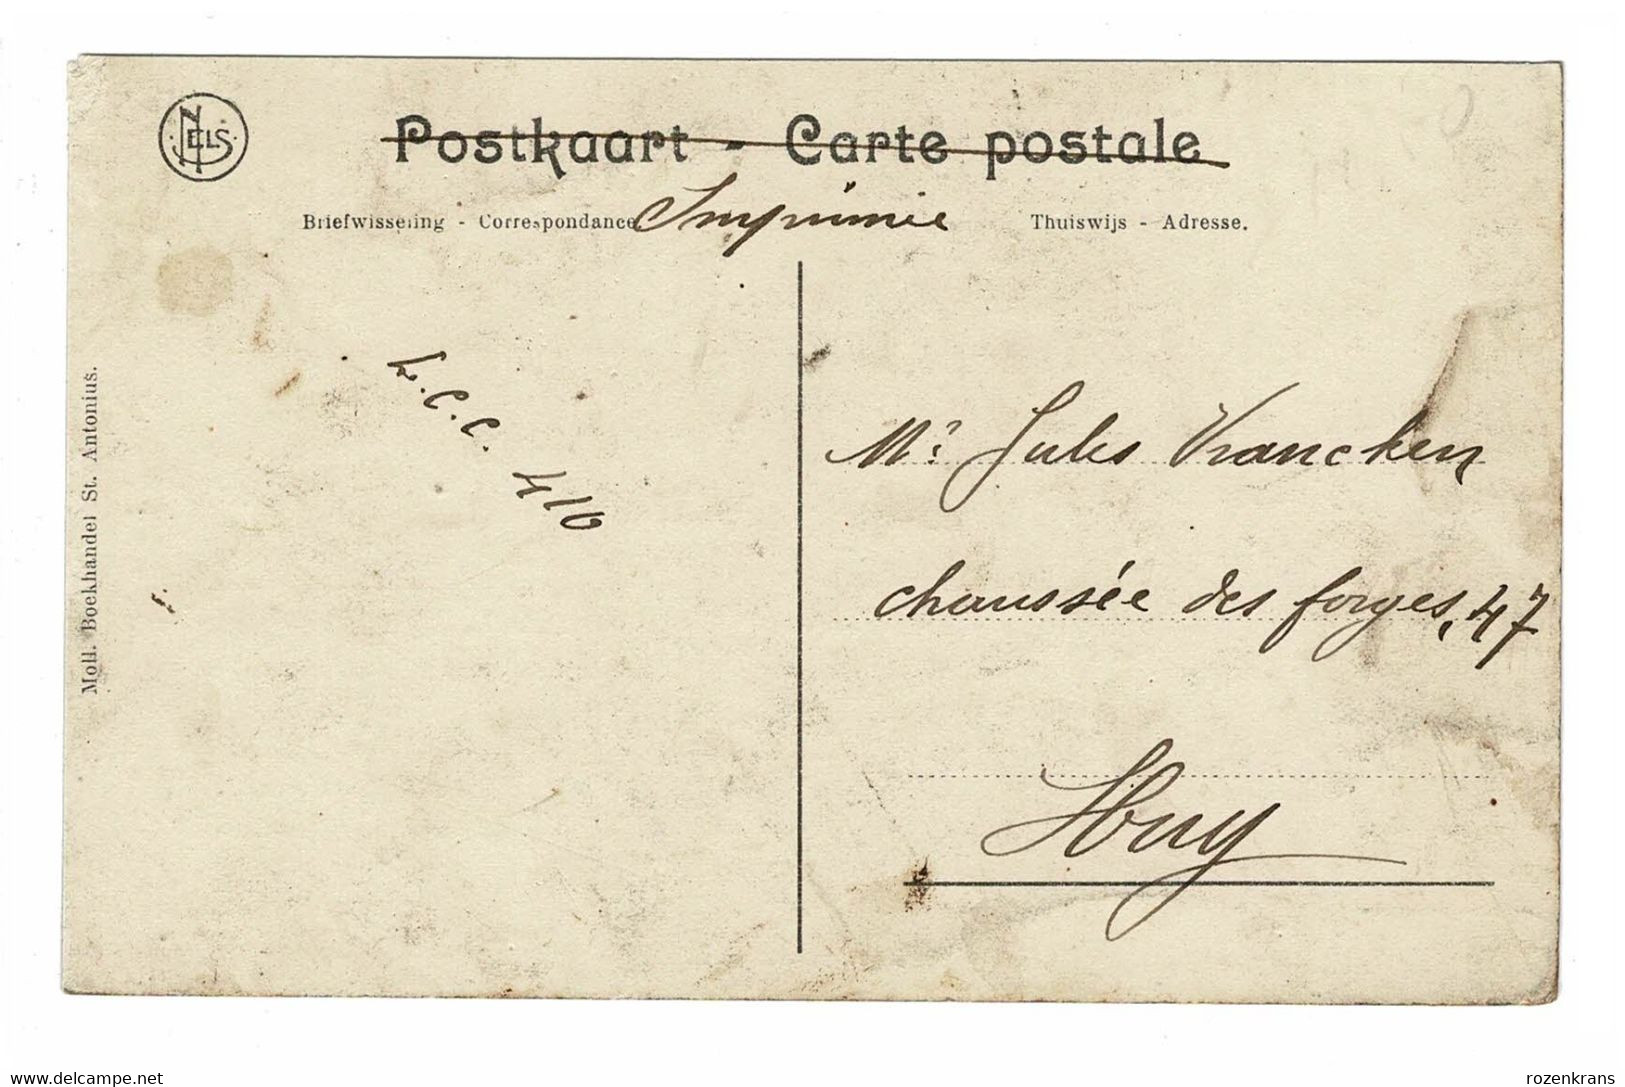 NELS
Postkaart - Carte postale
Briefwisseling - Correspondance
Imprimée
Thuiswijs - Adresse.
L.C.C. 416
Moll. Boekhandel St. Antonius.
Mr Jules Vrancken
chaussée des forges, 47
Huy
www.delcampe.net
rozenkrans